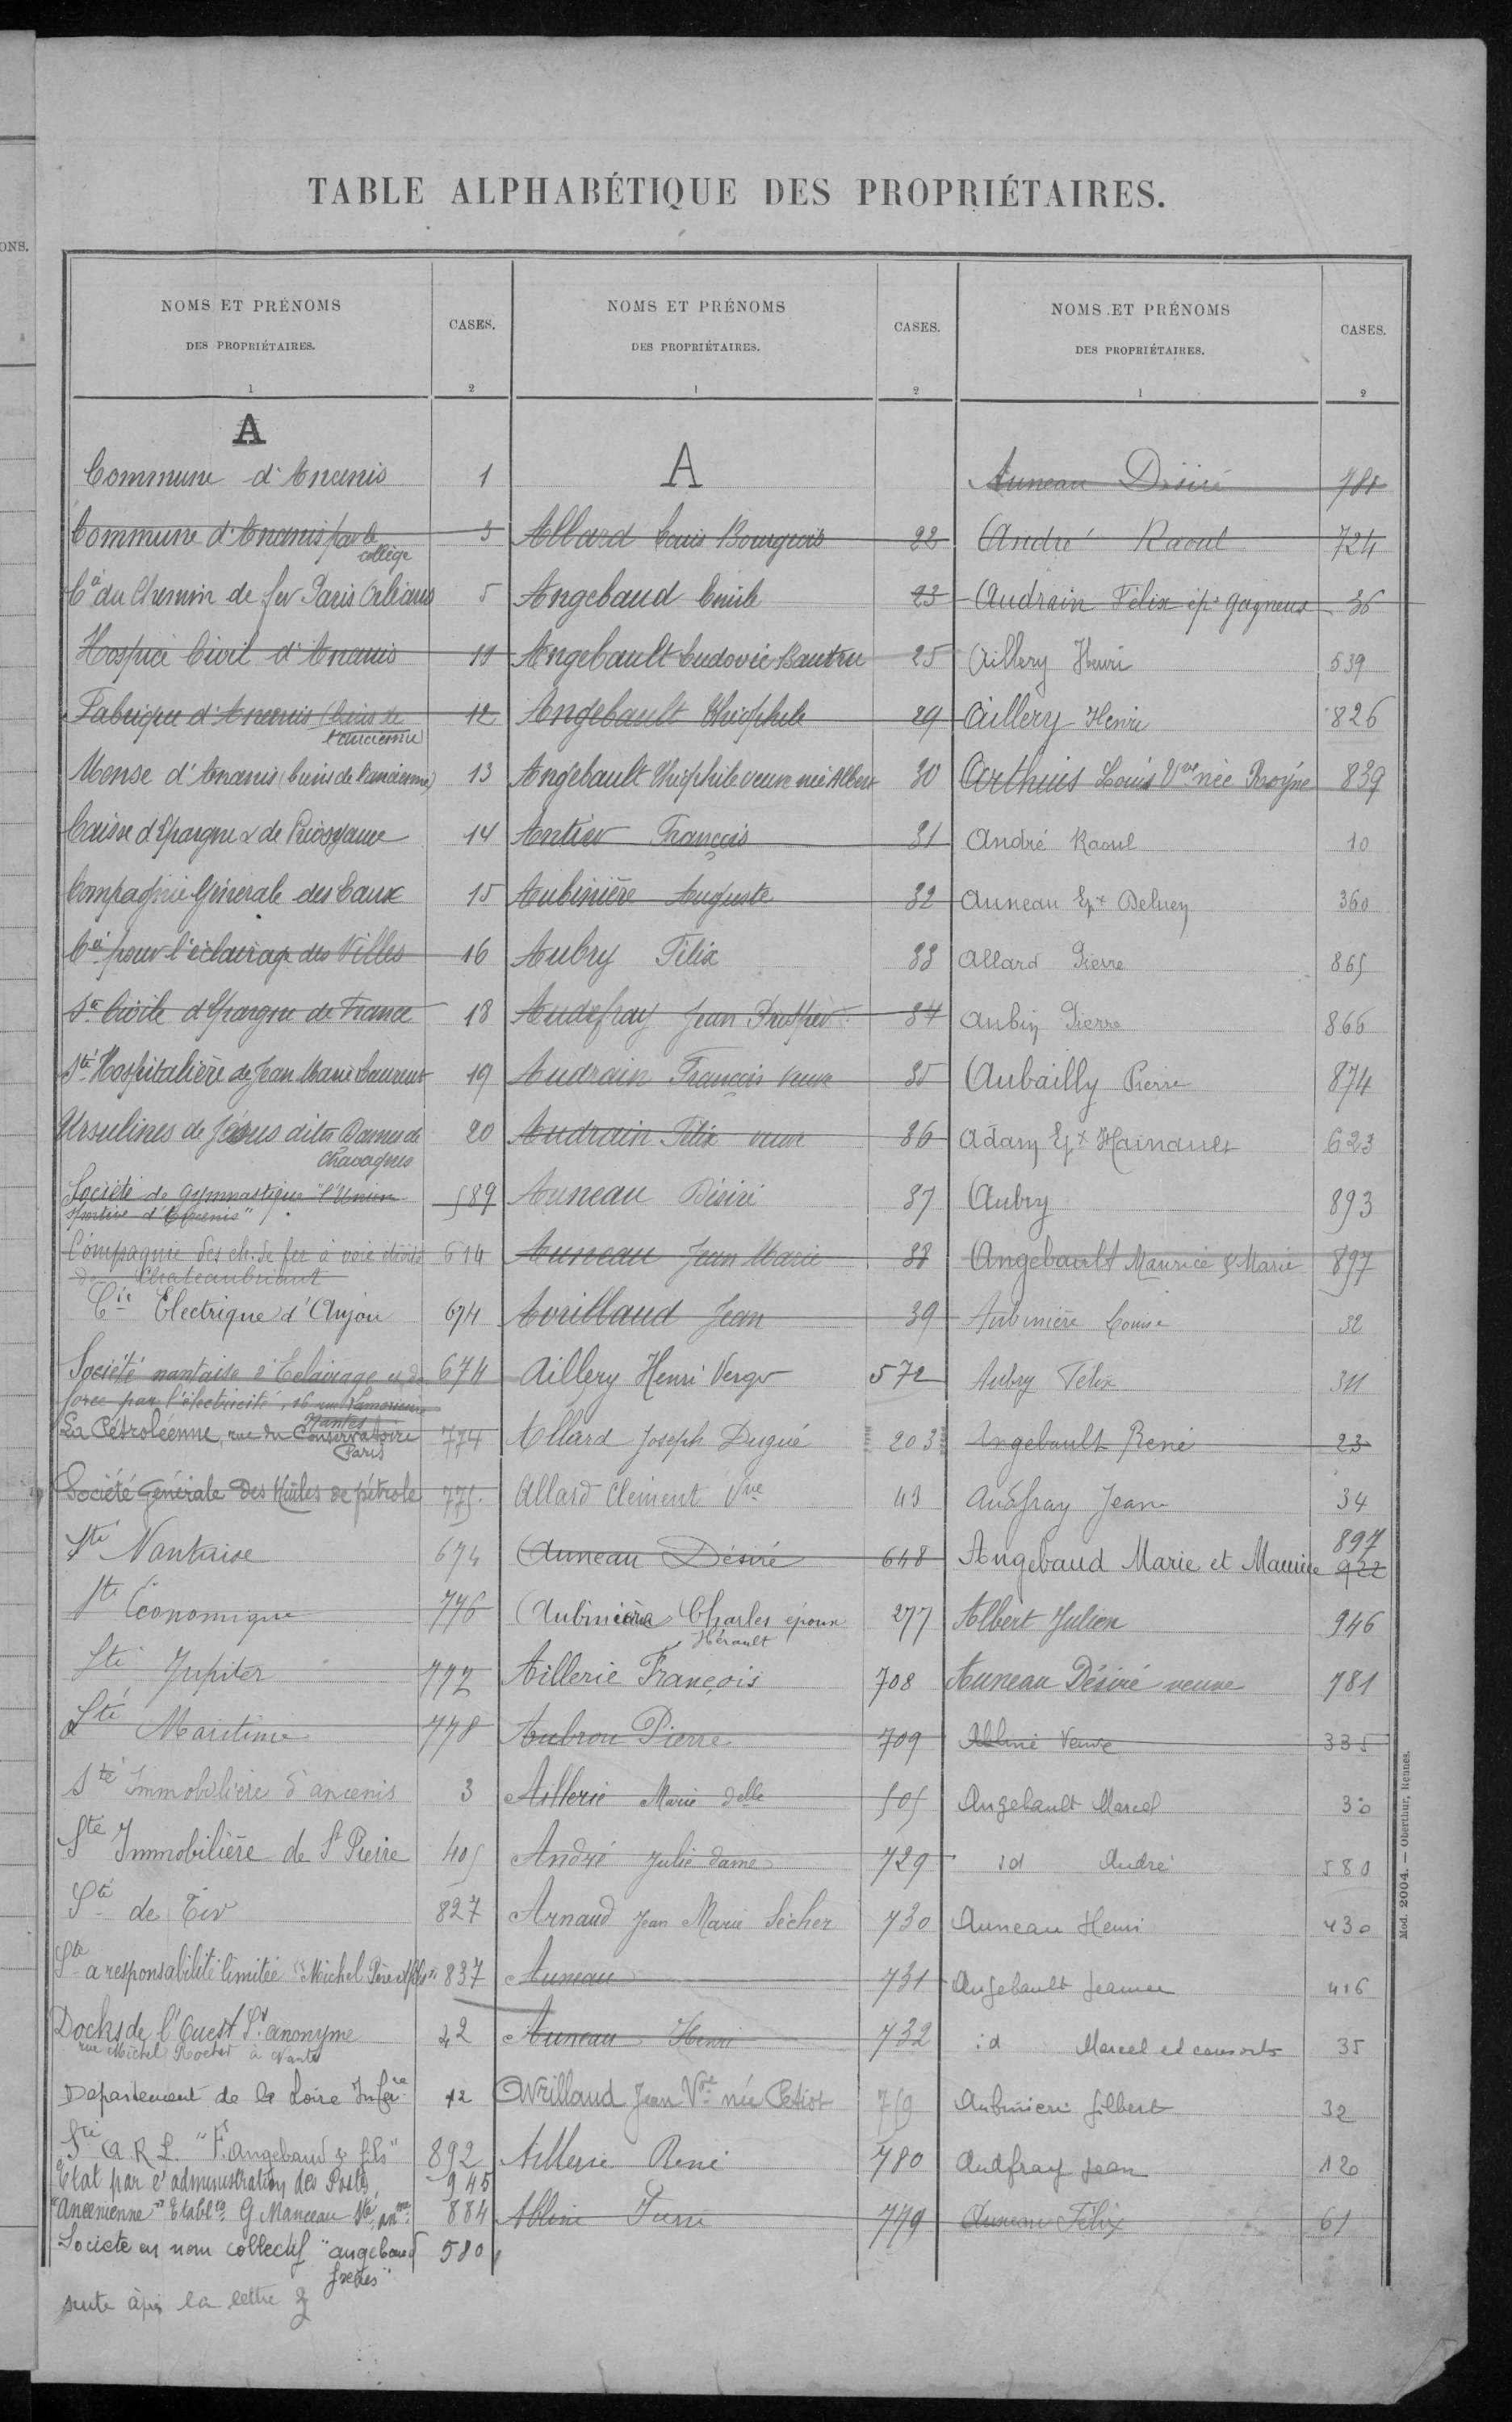 ONS.
TABLE ALPHABÉTIQUE DES PROPRIÉTAIRES.
NOMS ET PRÉNOMS
DES PROPRIÉTAIRES.
CASES.
1
2
A
Commune d'Ancenis 1
Commune d'Ancenis par le 3
collège
Cie du Chemin de fer Paris Orléans 5
Hospice Civil d'Ancenis 11
Fabrique d'Ancenis (biens de 12
l'ancienne)
Mense d'Ancenis (biens de l'ancienne) 13
Caisse d'Epargne & de Prévoyance 14
Compagnie Générale des Eaux 15
Cie pour l'éclairage des Villes 16
Sté Civile d'Epargne de France 18
Sté Hospitalière de Jean Marie Laurent 19
Ursulines de Jésus dites Dames de 20
Chavagnes
Société de gymnastique "l'Union 589
sportive d'Ancenis"
Compagnie des ch. de fer à voie étroite 614
de Chateaubriant
Cie Electrique d'Anjou 674
Société nantaise d'Eclairage et de 674
force par l'électricité, 16 rue Lamoricière
Nantes
La Pétroléenne, rue du Conservatoire 774
Paris
Société Générale des Huiles de pétrole 775
Sté Nantaise 674
Sté Économique 776
Sté Jupiter 777
Sté Maritime 778
Sté Immobilière d'ancenis 3
Sté Immobilière de St Pierre 405
Sté de Tir 827
Sté a responsabilité limitée "Michel Père et fils" 837
Docks de l'Ouest Sté anonyme 42
rue Michel Rocher à Nantes
Departement de la Loire Infre 12
Sté A R L. "F. Angebaud & fils" 892
Etat par l'administration des Postes 945
"Ancenienne" Etablts G Manceau Sté anme 884
Societe en nom collectif "angebaud 580
frères"
suite après la lettre Z
NOMS ET PRÉNOMS
DES PROPRIÉTAIRES.
CASES.
1
2
A
Allard Louis Bourgeois 22
Angebaud Emile 23
Angebault Ludovic Bautru 25
Angebault Théophile 29
Angebault Théophile veuve née Albert 30
Antier François 31
Aubinière Auguste 32
Aubry Félix 33
Audefray Jean Prosper 34
Audrain François veuve 35
Audrain Félix veuve 36
Auneau Désiré 37
Auneau Jean Marie 38
Avrillaud Jean 39
Aillery Henri Verger 572
Allard Joseph Dugué 203
Allard Clément Vve 43
Auneau Désiré 648
Aubinière Charles époux 277
Hérault
Aillerie François 708
Aubron Pierre 709
Aillerie Marie delle 505
André Julie dame 729
Arnaud Jean Marie Sécher 730
Auneau 731
Auneau Henri 732
Avrillaud Jean Vve née Petiot 759
Aillerie René 780
Abline Pierre 779
NOMS ET PRÉNOMS
DES PROPRIÉTAIRES.
CASES.
1
2
Auneau Désiré 781
André Raoul 724
Audrain Félix ép. Gagneux 36
Aillery Henri 539
Aillery Henri 826
Arthuis Louis Vve née Royné 839
André Raoul 10
Auneau Ex Deluen 360
Allard Pierre 865
Aubin Pierre 866
Aubailly Pierre 874
Adam Ex Hainault 623
Aubry 893
Angebault Maurice & Marie 897
Aubinière Louise 32
Aubry Félix 311
Angebault René 23
Audfray Jean 34
897
Angebaud Marie et Maurice 922
Albert Julien 946
Auneau Désiré veuve 781
Abline Veuve 335
Angebault Marcel 30
id André 580
Auneau Henri 430
Angebault Jeanne 416
id Marcel et consorts 35
Aubinière Gilbert 32
Audfray Jean 120
Auneau Félix 61
Mod. 2004. — Oberthur, Rennes.